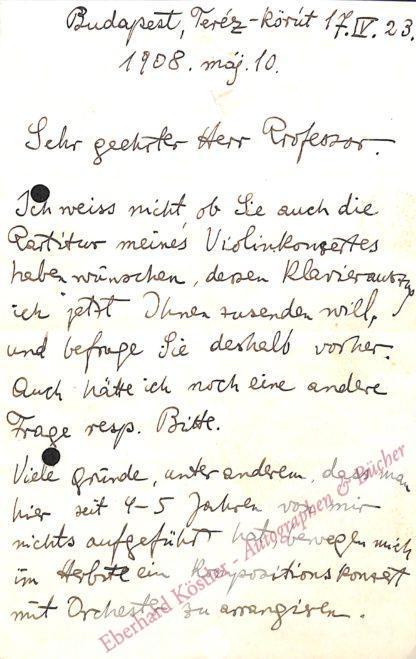 Budapest, Teréz-körút 17. IV. 23.
1908. máj. 10.
Sehr geehrter Herr Professor.
Ich weiss nicht ob Sie auch die
Partitur meines Violinkonzertes
haben wünschen, dessen Klavierauszug
ich jetzt Ihnen zusenden will,
und befrage Sie deshalb vorher.
Auch hätte ich noch eine andere
Frage resp. Bitte.
Viele gründe, unter anderem, dass man
hier seit 4-5 Jahren von mir
nichts aufgeführt hat bewegen mich
im Herbste ein Kompositionskonzert
mit Orchester zu arrangiren.
Eberhard Köstler - Autographen & Bücher